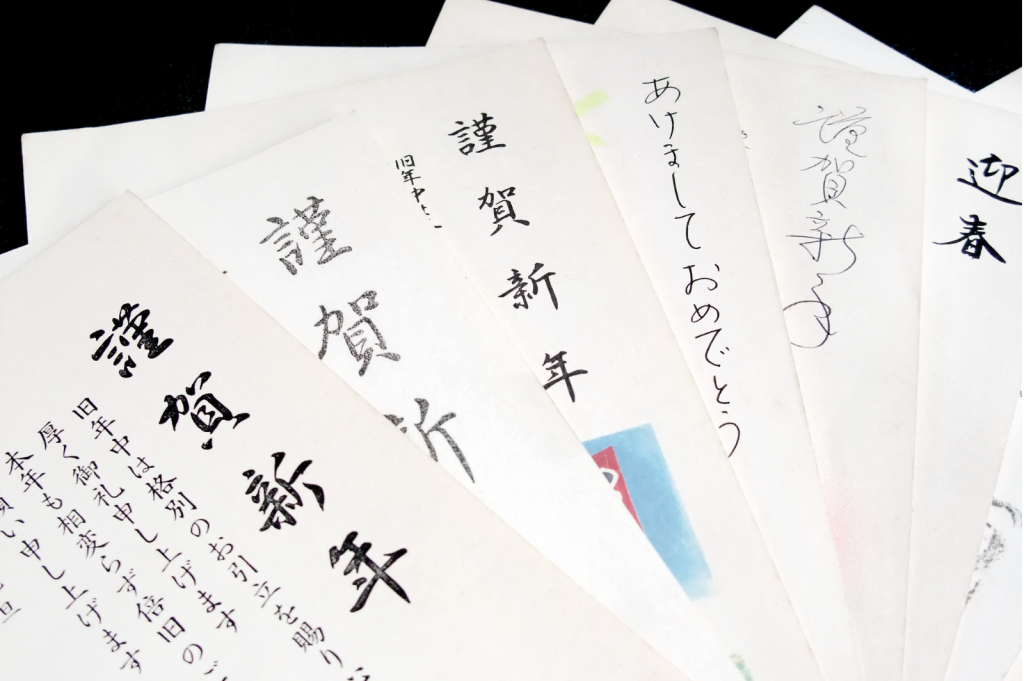 謹賀新年
旧年中は格別のお引立を賜り
厚く御礼申し上げます
本年も相変らず倍旧のご
願い申し上げます
旦
謹賀新
謹賀新年
旧年中は
あけましておめでとう
謹賀新年
迎春